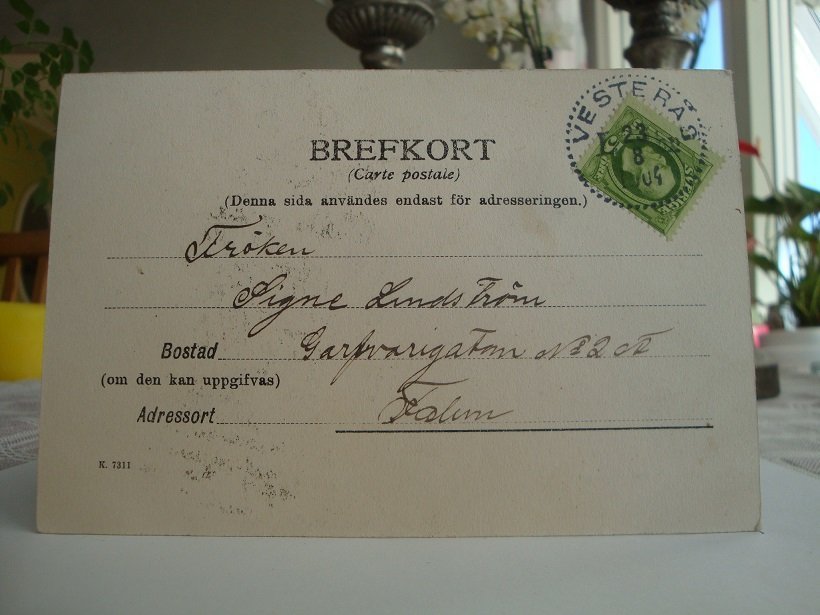 VESTERÅS
23
8
04
BREFKORT
(Carte postale)
(Denna sida användes endast för adresseringen.)
Fröken
Signe Lindström
Bostad Garfvarigatan No 2 A
(om den kan uppgifvas)
Adressort Falun
K. 7311